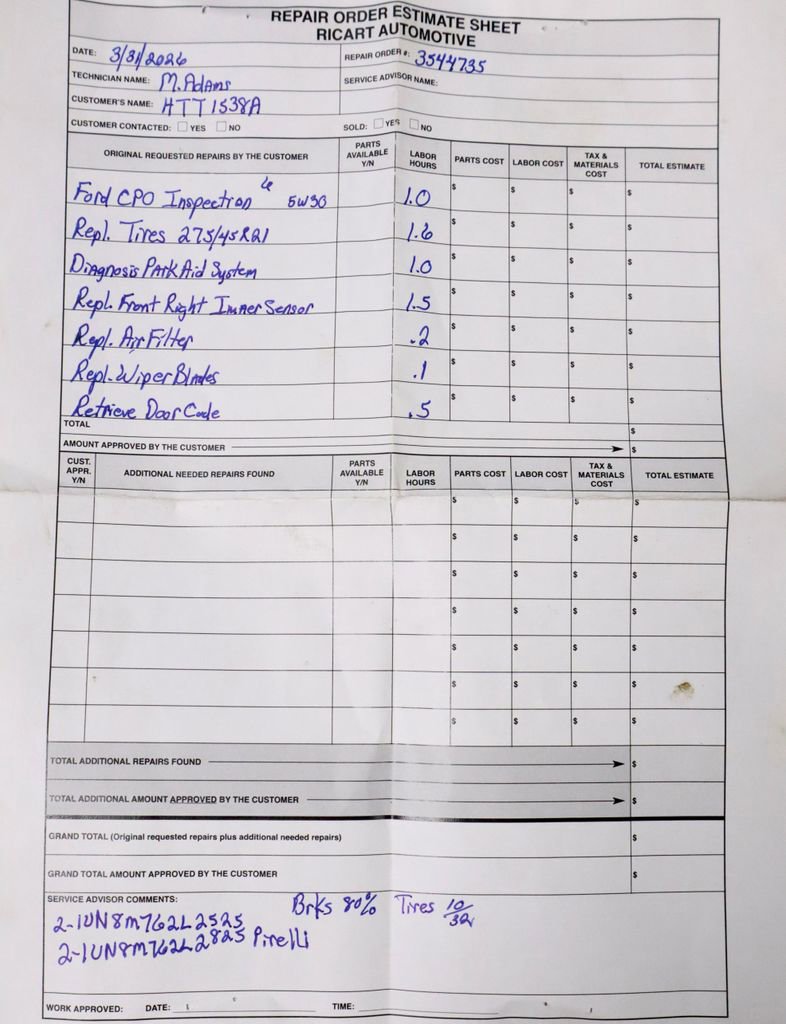 REPAIR ORDER ESTIMATE SHEET
RICART AUTOMOTIVE
DATE: 3/31/2026 REPAIR ORDER #: 3544735
TECHNICIAN NAME: M. Adams SERVICE ADVISOR NAME:
CUSTOMER'S NAME: HTT1538A
CUSTOMER CONTACTED: YES NO SOLD: YES NO
ORIGINAL REQUESTED REPAIRS BY THE CUSTOMER PARTS AVAILABLE Y/N LABOR HOURS PARTS COST LABOR COST TAX & MATERIALS COST TOTAL ESTIMATE
Ford CPO Inspection 6 5W30 1.0 $ $ $ $
Repl. Tires 275/45R21 1.6 $ $ $ $
Diagnosis Park Aid System 1.0 $ $ $ $
Repl. Front Right Inner Sensor 1.5 $ $ $ $
Repl. Air Filter .2 $ $ $ $
Repl. Wiper Blades .1 $ $ $ $
Retrieve Door Code .5 $ $ $ $
TOTAL $
AMOUNT APPROVED BY THE CUSTOMER $
CUST. APPR. Y/N ADDITIONAL NEEDED REPAIRS FOUND PARTS AVAILABLE Y/N LABOR HOURS PARTS COST LABOR COST TAX & MATERIALS COST TOTAL ESTIMATE
$ $ $ $
$ $ $ $
$ $ $ $
$ $ $ $
$ $ $ $
$ $ $ $
$ $ $ $
TOTAL ADDITIONAL REPAIRS FOUND $
TOTAL ADDITIONAL AMOUNT APPROVED BY THE CUSTOMER $
GRAND TOTAL (Original requested repairs plus additional needed repairs) $
GRAND TOTAL AMOUNT APPROVED BY THE CUSTOMER $
SERVICE ADVISOR COMMENTS: Brks 80% Tires 10/32
2-1UN8M762L2525
2-1UN8M762L2825 Pirelli
WORK APPROVED: DATE: TIME: